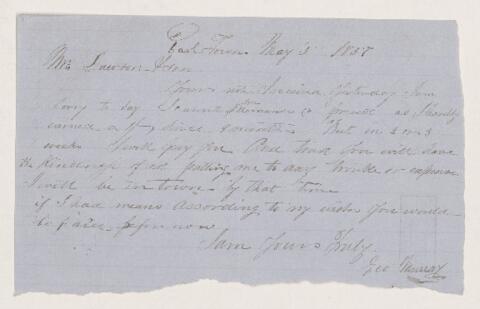 Town May 3 1857
Mr Lawson
Yours was Received Yesterday I am
Sorry to say I cannot as I hardly
earned a since 2 months But in 2 or 3
weeks I will pay you But trust you will have
the Kindness of not putting me to any trouble or expense
I will be in town by that time
if I had means According to my wishes You would
be paid before now
I am Yours Truly
Geo Murray